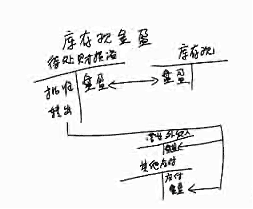 库存现金盈
待处财损溢 库存现
盈盈 盈盈
批准
转出
营业外收入
盈盈
其他应付
应付
盈盈